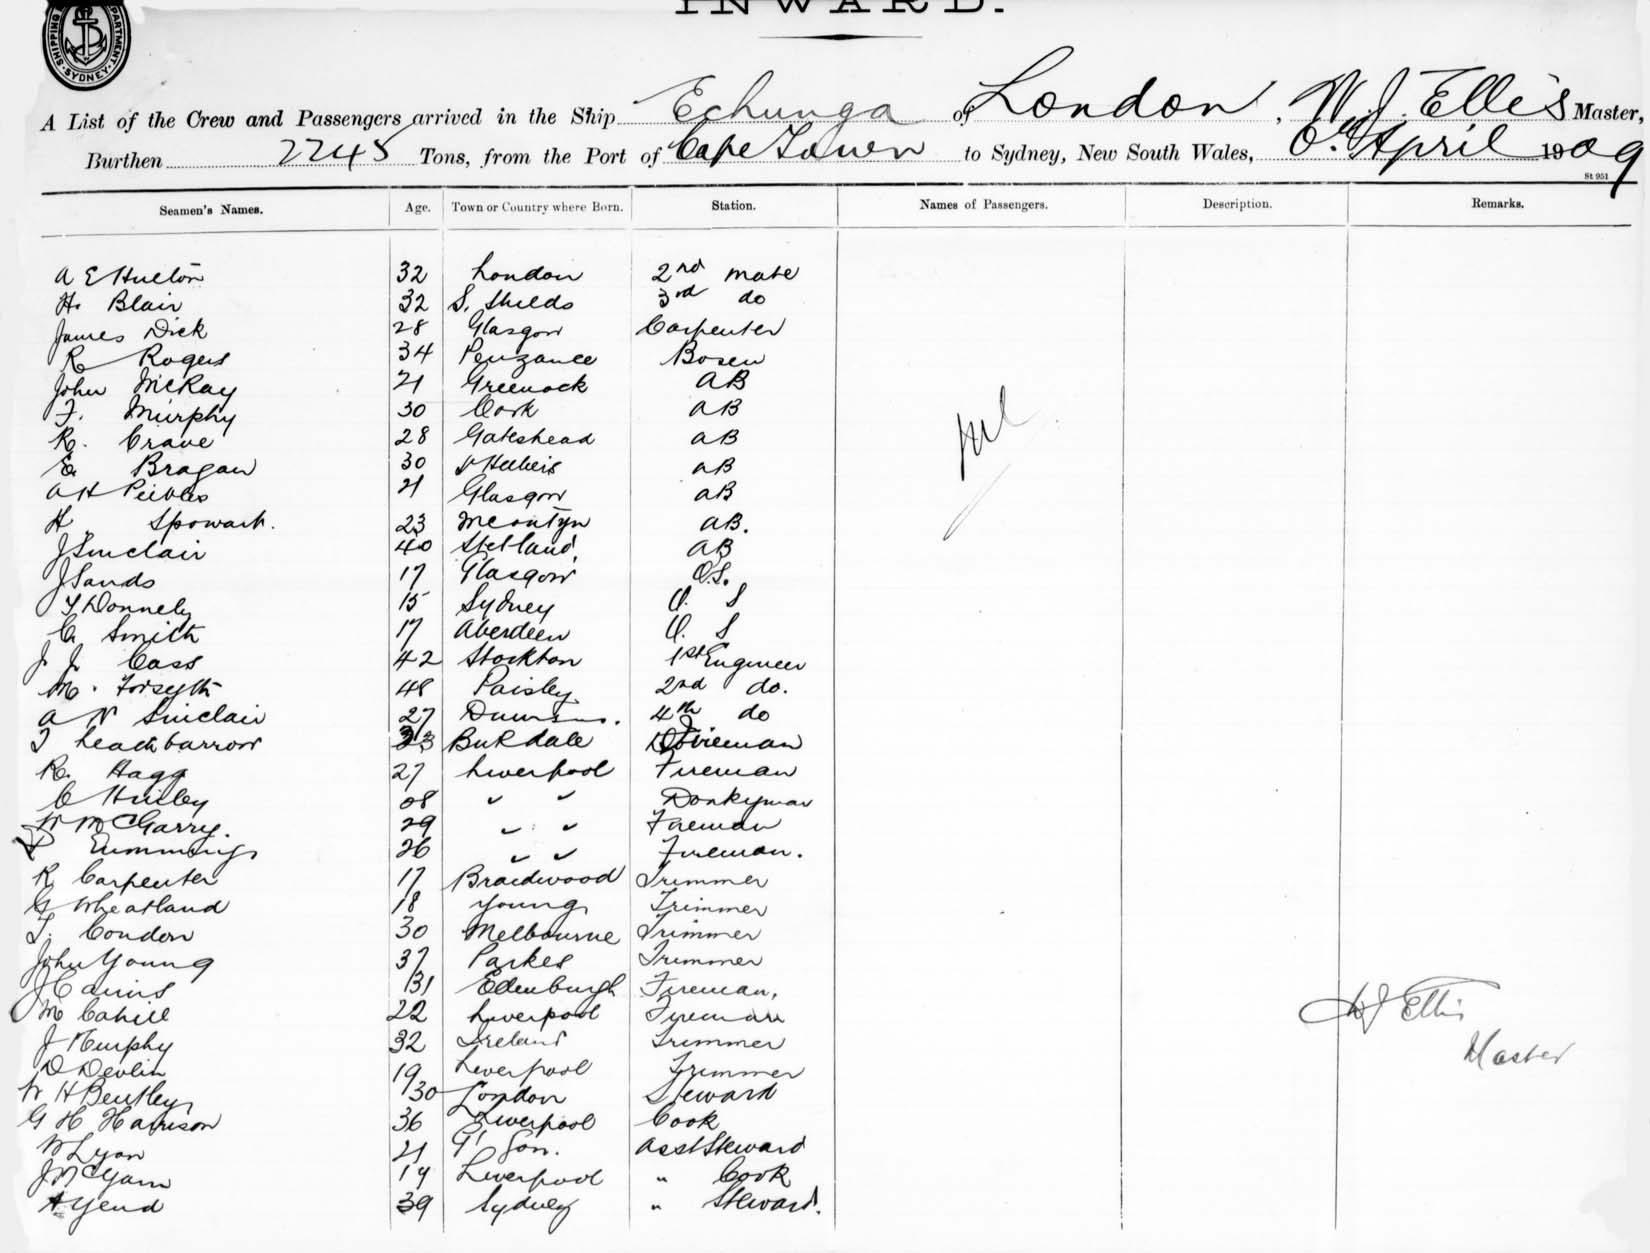 INWARD.
SHIPPING DEPARTMENT. SYDNEY.
A List of the Crew and Passengers arrived in the Ship Echunga of London, W. J. Ellis Master,
Burthen 2245 Tons, from the Port of Cape Town to Sydney, New South Wales, 6th April 1909
St 951
Seamen's Names. Age. Town or Country where Born. Station. Names of Passengers. Description. Remarks.
A E Hulton 32 London 2nd mate
H. Blair 32 S. Shields 3rd do
James Dick 28 Glasgow Carpenter
R Rogers 34 Penzance Bosen
John McKay 21 Greenock AB
F. Murphy 30 Cork AB
R. Crave 28 Gateshead AB
E. Bragan 30 St Heliers AB
Nil
A H Peebles 21 Glasgow AB
H. Spowart. 23 AB.
J Sinclair 40 Shetland AB
J Sands 17 Glasgow O.S.
T Donnely 15 Sydney O. S
C. Smith 17 Aberdeen O. S
J J. Cass 42 Stockton 1st Engineer
M. Forsyth 48 Paisley 2nd do.
A N Sinclair 27 4th do
T Leachbarrow 33 Birkdale Fireman
R. Hagg 27 Liverpool Fireman
C Hinley 28 " " Donkyman
W McGarry. 29 " " Fireman
Cummings 26 " " Fireman.
R Carpenter 17 Braidwood Trimmer
G Wheatland 18 Young Trimmer
T. Condon 30 Melbourne Trimmer
John Young 37 Parkes Trimmer
J Cairns 31 Edenburgh Fireman,
M Cahill 22 Liverpool Fireman
W J Ellis
J Murphy 32 Ireland Trimmer
Master
D Devlin 19 Liverpool Trimmer
W H Bentley 30 London Steward
G H Harrison 36 Liverpool Cook
W Lyon 21 Asst Steward
J McGann 19 Liverpool " Cook
A Yend 39 Sydney " Steward.